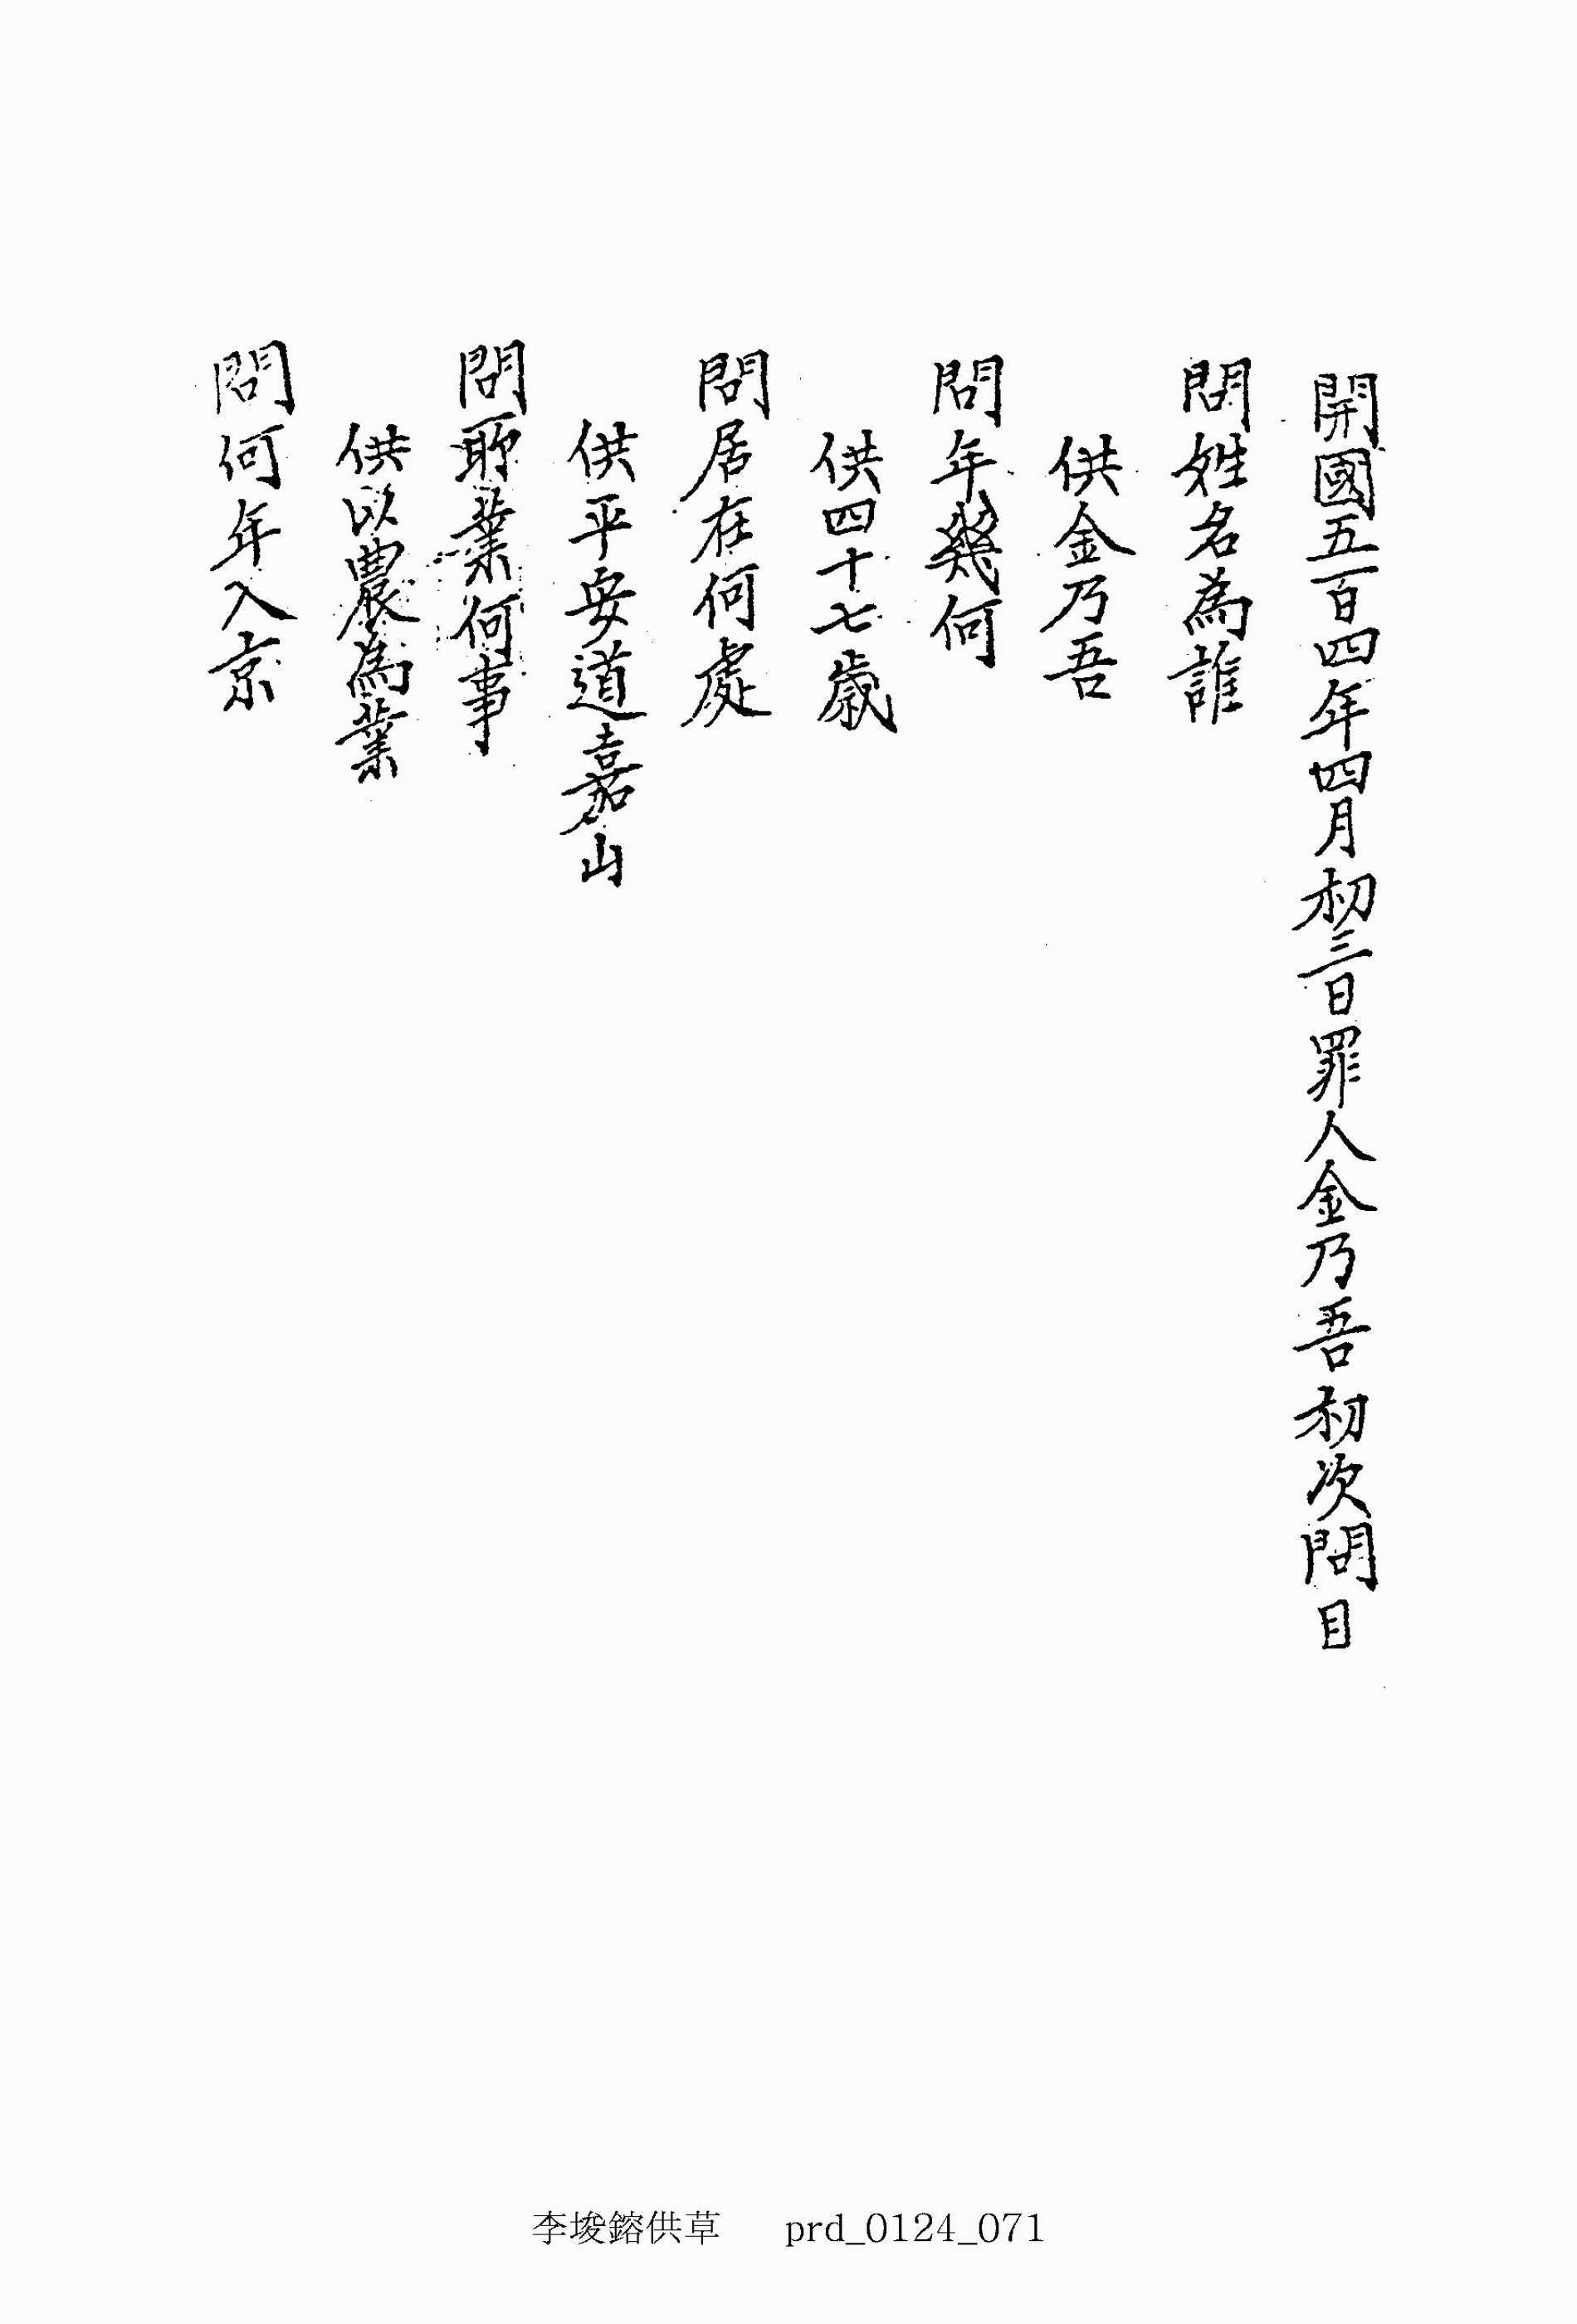 開國五百四年四月初三日罪人金乃吾初次問目
問姓名為誰
供金乃吾
問年幾何
供四十七歲
問居在何處
供平安道嘉山
問所業何事
供以農為業
問何年入京
李埈鎔供草 prd_0124_071